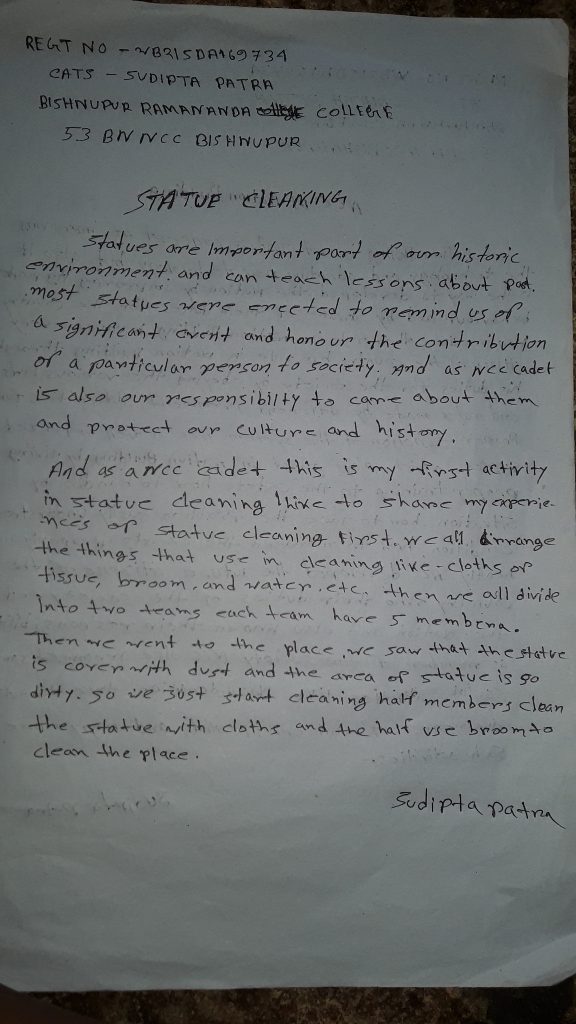 REGT NO - WB21SDA169734
CATS - SUDIPTA PATRA
BISHNUPUR RAMANANDA COLLEGE
53 BN NCC BISHNUPUR
STATUE CLEANING
Statues are Important part of our historic
environment. and can teach lessons. about past.
most statues were erected to remind us of
a significant event and honour the contribution
of a particular person to society. And as ncc cadet
is also our responsibilty to care about them
and protect our culture and history.
And as a ncc cadet this is my first activity
in statue cleaning I like to share my experie-
nces of statue cleaning First. we all arrange
the things that use in cleaning like - cloths or
tissue, broom. and water. etc. then we all divide
Into two teams each team have 5 members.
Then we went to the place, we saw that the statue
is cover with dust and the area of statue is so
dirty. so we just start cleaning half members clean
the statue with cloths and the half use broom to
clean the place.
Sudipta patra